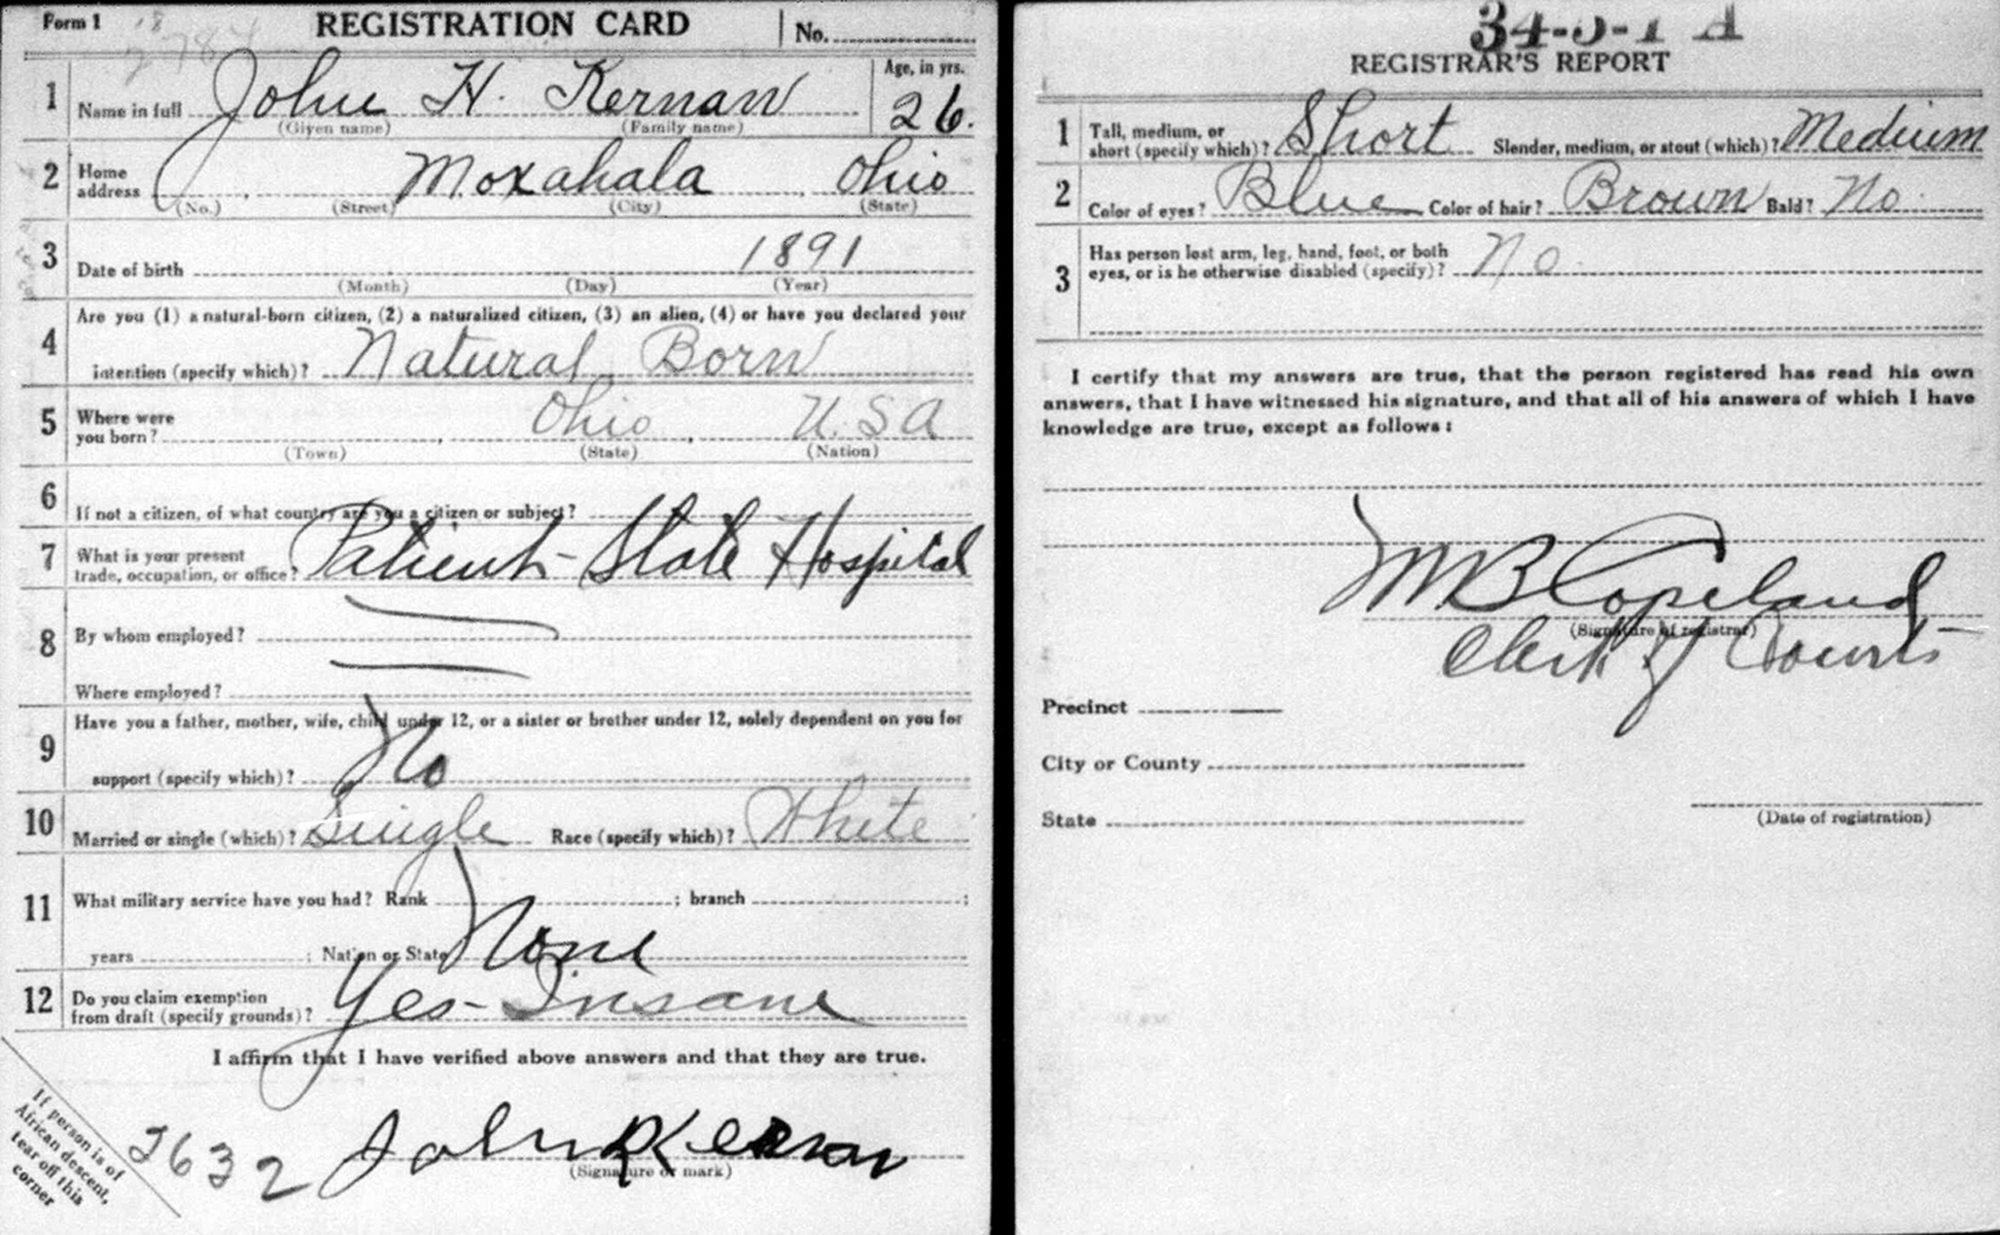 Form 1
REGISTRATION CARD
No.
1 Name in full John H. Kernan
(Given name) (Family name)
Age, in yrs.
26.
2 Home address Moxahala, Ohio
(No.) (Street) (City) (State)
3 Date of birth 1891
(Month) (Day) (Year)
4 Are you (1) a natural-born citizen, (2) a naturalized citizen, (3) an alien, (4) or have you declared your
intention (specify which)? Natural Born
5 Where were you born? Ohio, U.S.A
(Town) (State) (Nation)
6 If not a citizen, of what country are you a citizen or subject?
7 What is your present trade, occupation, or office? Patient - State Hospital
8 By whom employed?
Where employed?
9 Have you a father, mother, wife, child under 12, or a sister or brother under 12, solely dependent on you for
support (specify which)? No
10 Married or single (which)? Single Race (specify which)? White
11 What military service have you had? Rank ; branch ;
years ; Nation or State None
12 Do you claim exemption from draft (specify grounds)? Yes - Insane
I affirm that I have verified above answers and that they are true.
If person is of
African descent,
tear off this
corner
John Kernan
(Signature or mark)
34-5-1 A
REGISTRAR'S REPORT
1 Tall, medium, or short (specify which)? Short Slender, medium, or stout (which)? Medium
2 Color of eyes? Blue Color of hair? Brown Bald? No
3 Has person lost arm, leg, hand, foot, or both
eyes, or is he otherwise disabled (specify)? No
I certify that my answers are true, that the person registered has read his own
answers, that I have witnessed his signature, and that all of his answers of which I have
knowledge are true, except as follows:
M B Copeland
(Signature of registrar)
Clerk of Courts
Precinct
City or County
State
(Date of registration)